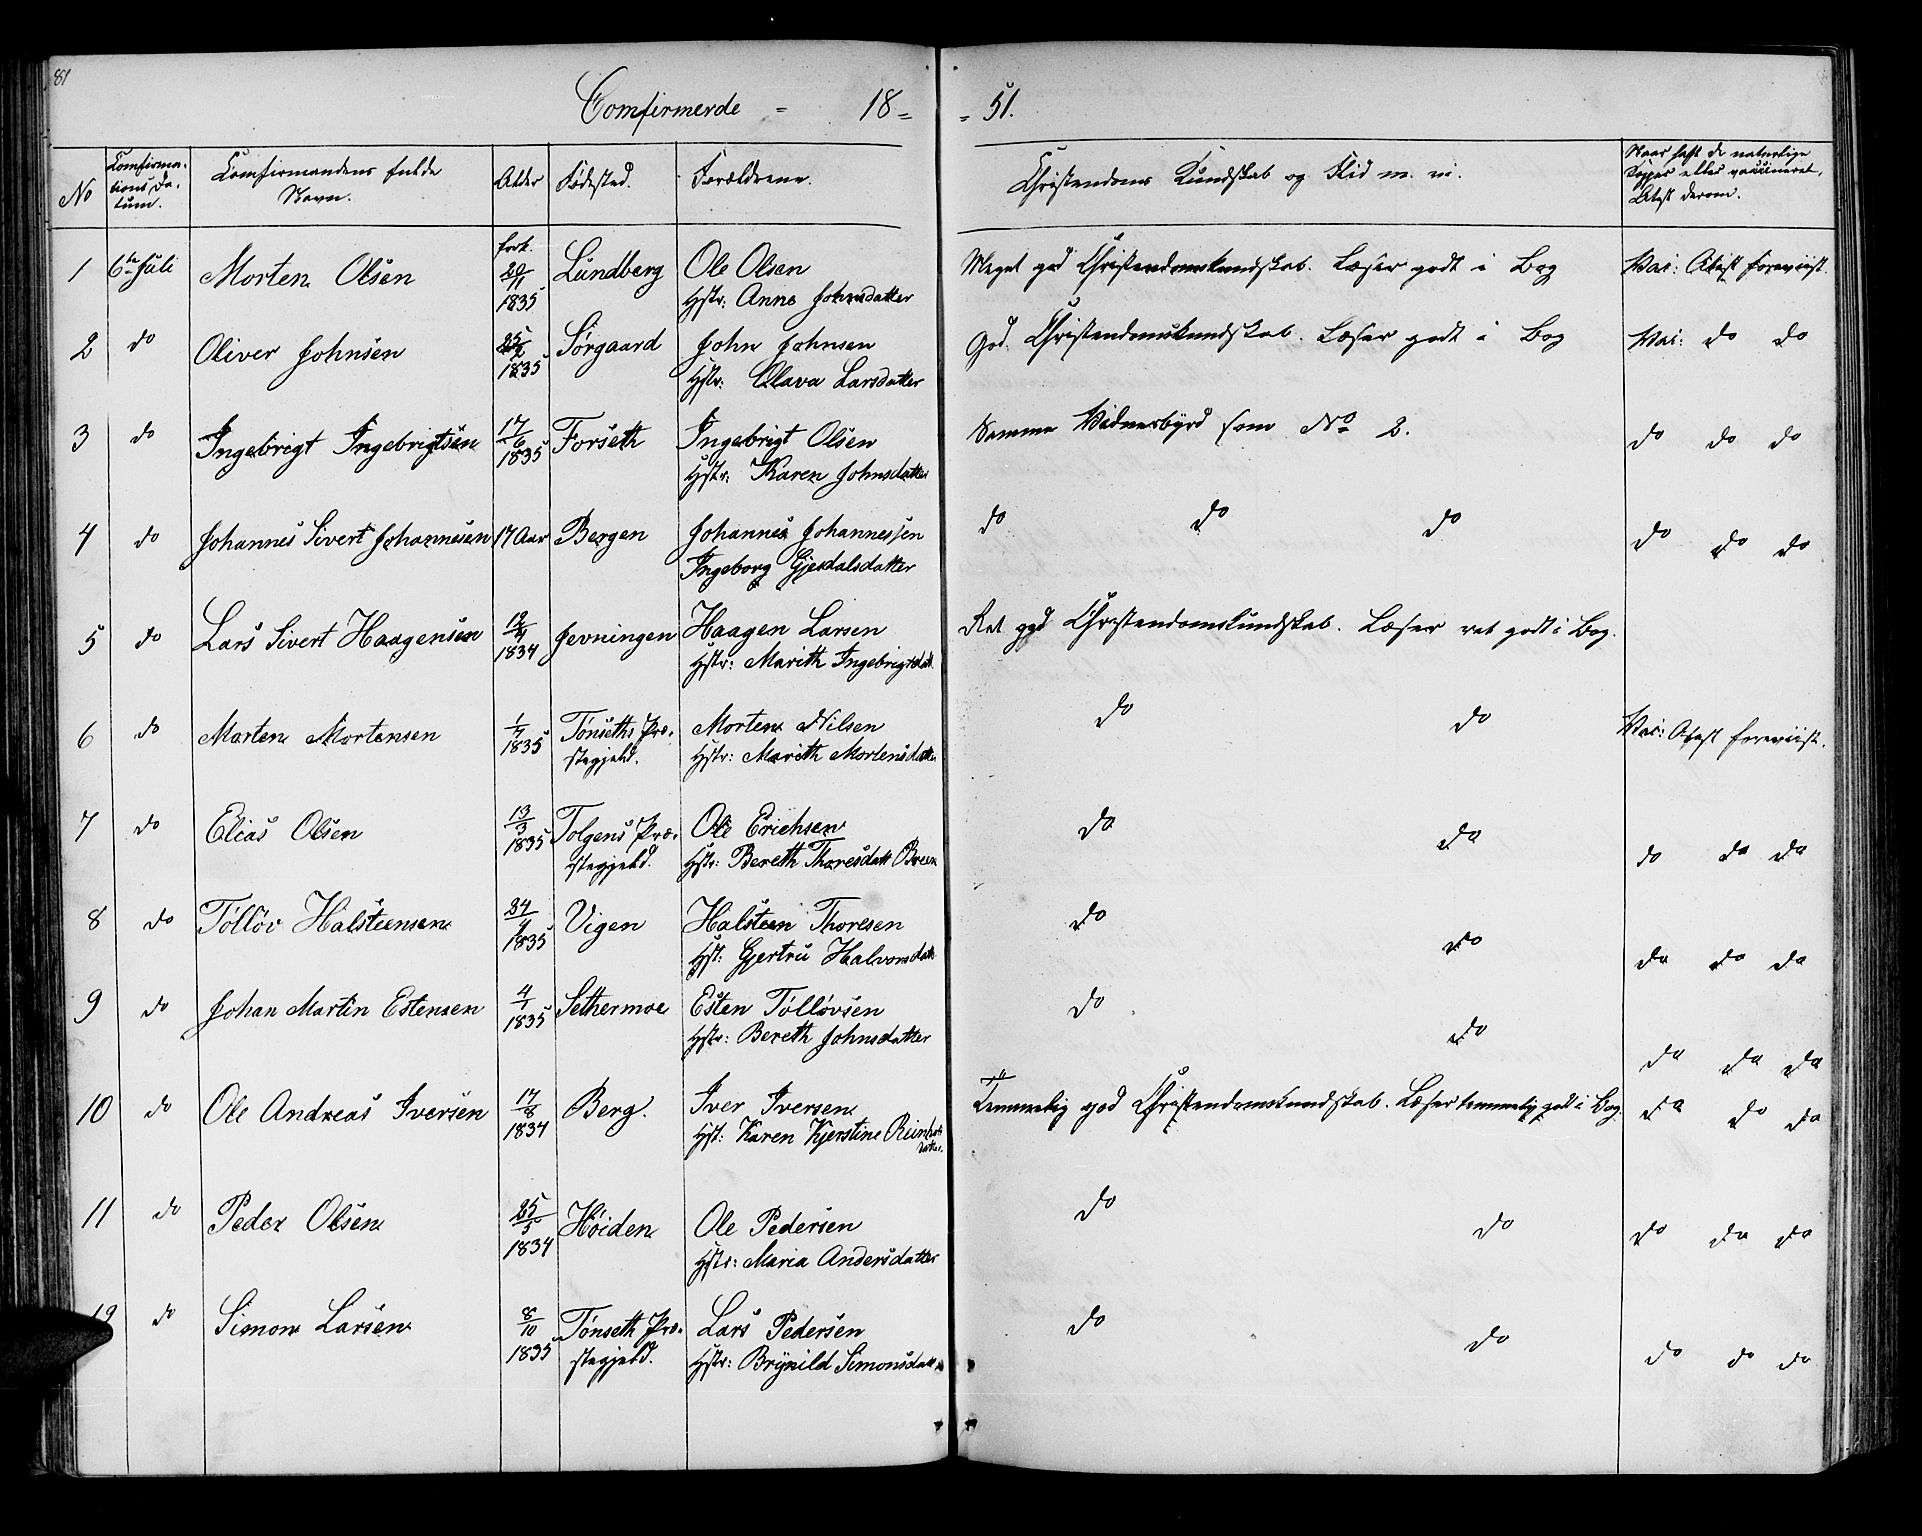 81
Comfirmerde = 18= = 51.
No
Comfirma-
tions Da-
tum.
Comfirmandens fulde
Navn.
Alder
Fødested.
Forældrene.
Christendoms Kundskab og Flid m. m.
Naar haft de naturlige
Kopper eller vaccineret,
Atest derom.
1 6te Juli Morten Olsen født. 29/11 1835 Lundberg Ole Olsen
Hstr: Anne Johnsdatter
Meget god Christendomskundskab. Læser godt i Bog Vac: Atest foreviist.
2 do Oliver Johnsen 25/2 1835 Sørgaard John Johnsen
Hstr: Olava Larsdatter
God Christendomskundskab. Læser godt i Bog Vac: do do
3 do Ingebrigt Ingebrigtsen 17/6 1835 Forseth Ingebrigt Olsen
Hstr: Karen Johnsdatter
Samme Vidnesbyrd som No 2. do do do
4 do Johannes Sivert Johannesen 17 Aar Bergen Johannes Johannessen
Ingeborg Gjesdalsdatter
do do do do do do
5 do Lars Sivert Haagensen 12/4 1834 Jevningen Haagen Larsen
Hstr: Marith Ingebrigtsdat.
Ret god Christendomskundskab. Læser ret godt i Bog.
6 do Morten Mortensen 1/4 1835 Tønseths Præ-
stegjeld.
Morten Nilsen
Hstr: Marith Mortensdatter
do do Vac: Atest foreviist.
7 do Elias Olsen 13/3 1835 Tolgens Præ-
stegjeld.
Ole Erichsen
Hstr: Bereth Thoresdatt Breen
do do do do do
8 do Tølløv Halsteensen 24/4 1835 Vigen Halsteen Thoresen
Hst: Gjertru Halvorsdatt
do do do do do
9 do Johan Martin Estensen 4/1 1835 Sethermoe Esten Tølløvsen
Hstr: Bereth Johnsdatter
do do do do do
10 do Ole Andreas Iversen 17/8 1834 Berg. Iver Iversen
Hst: Karen Kjerstine
datter.
Temmelig god Christendomskundskab. Læser temmelig godt i Bog do do do
11 do Peder Olsen 25/5 1834 Høiden Ole Pedersen
Hstr: Maria Andersdatter
do do do do do
12 do Simon Larsen 8/10 1835 Tønseth Præ-
stegjeld.
Lars Pedersen
Hstr: Brynild Simonsdatt
do do do do do